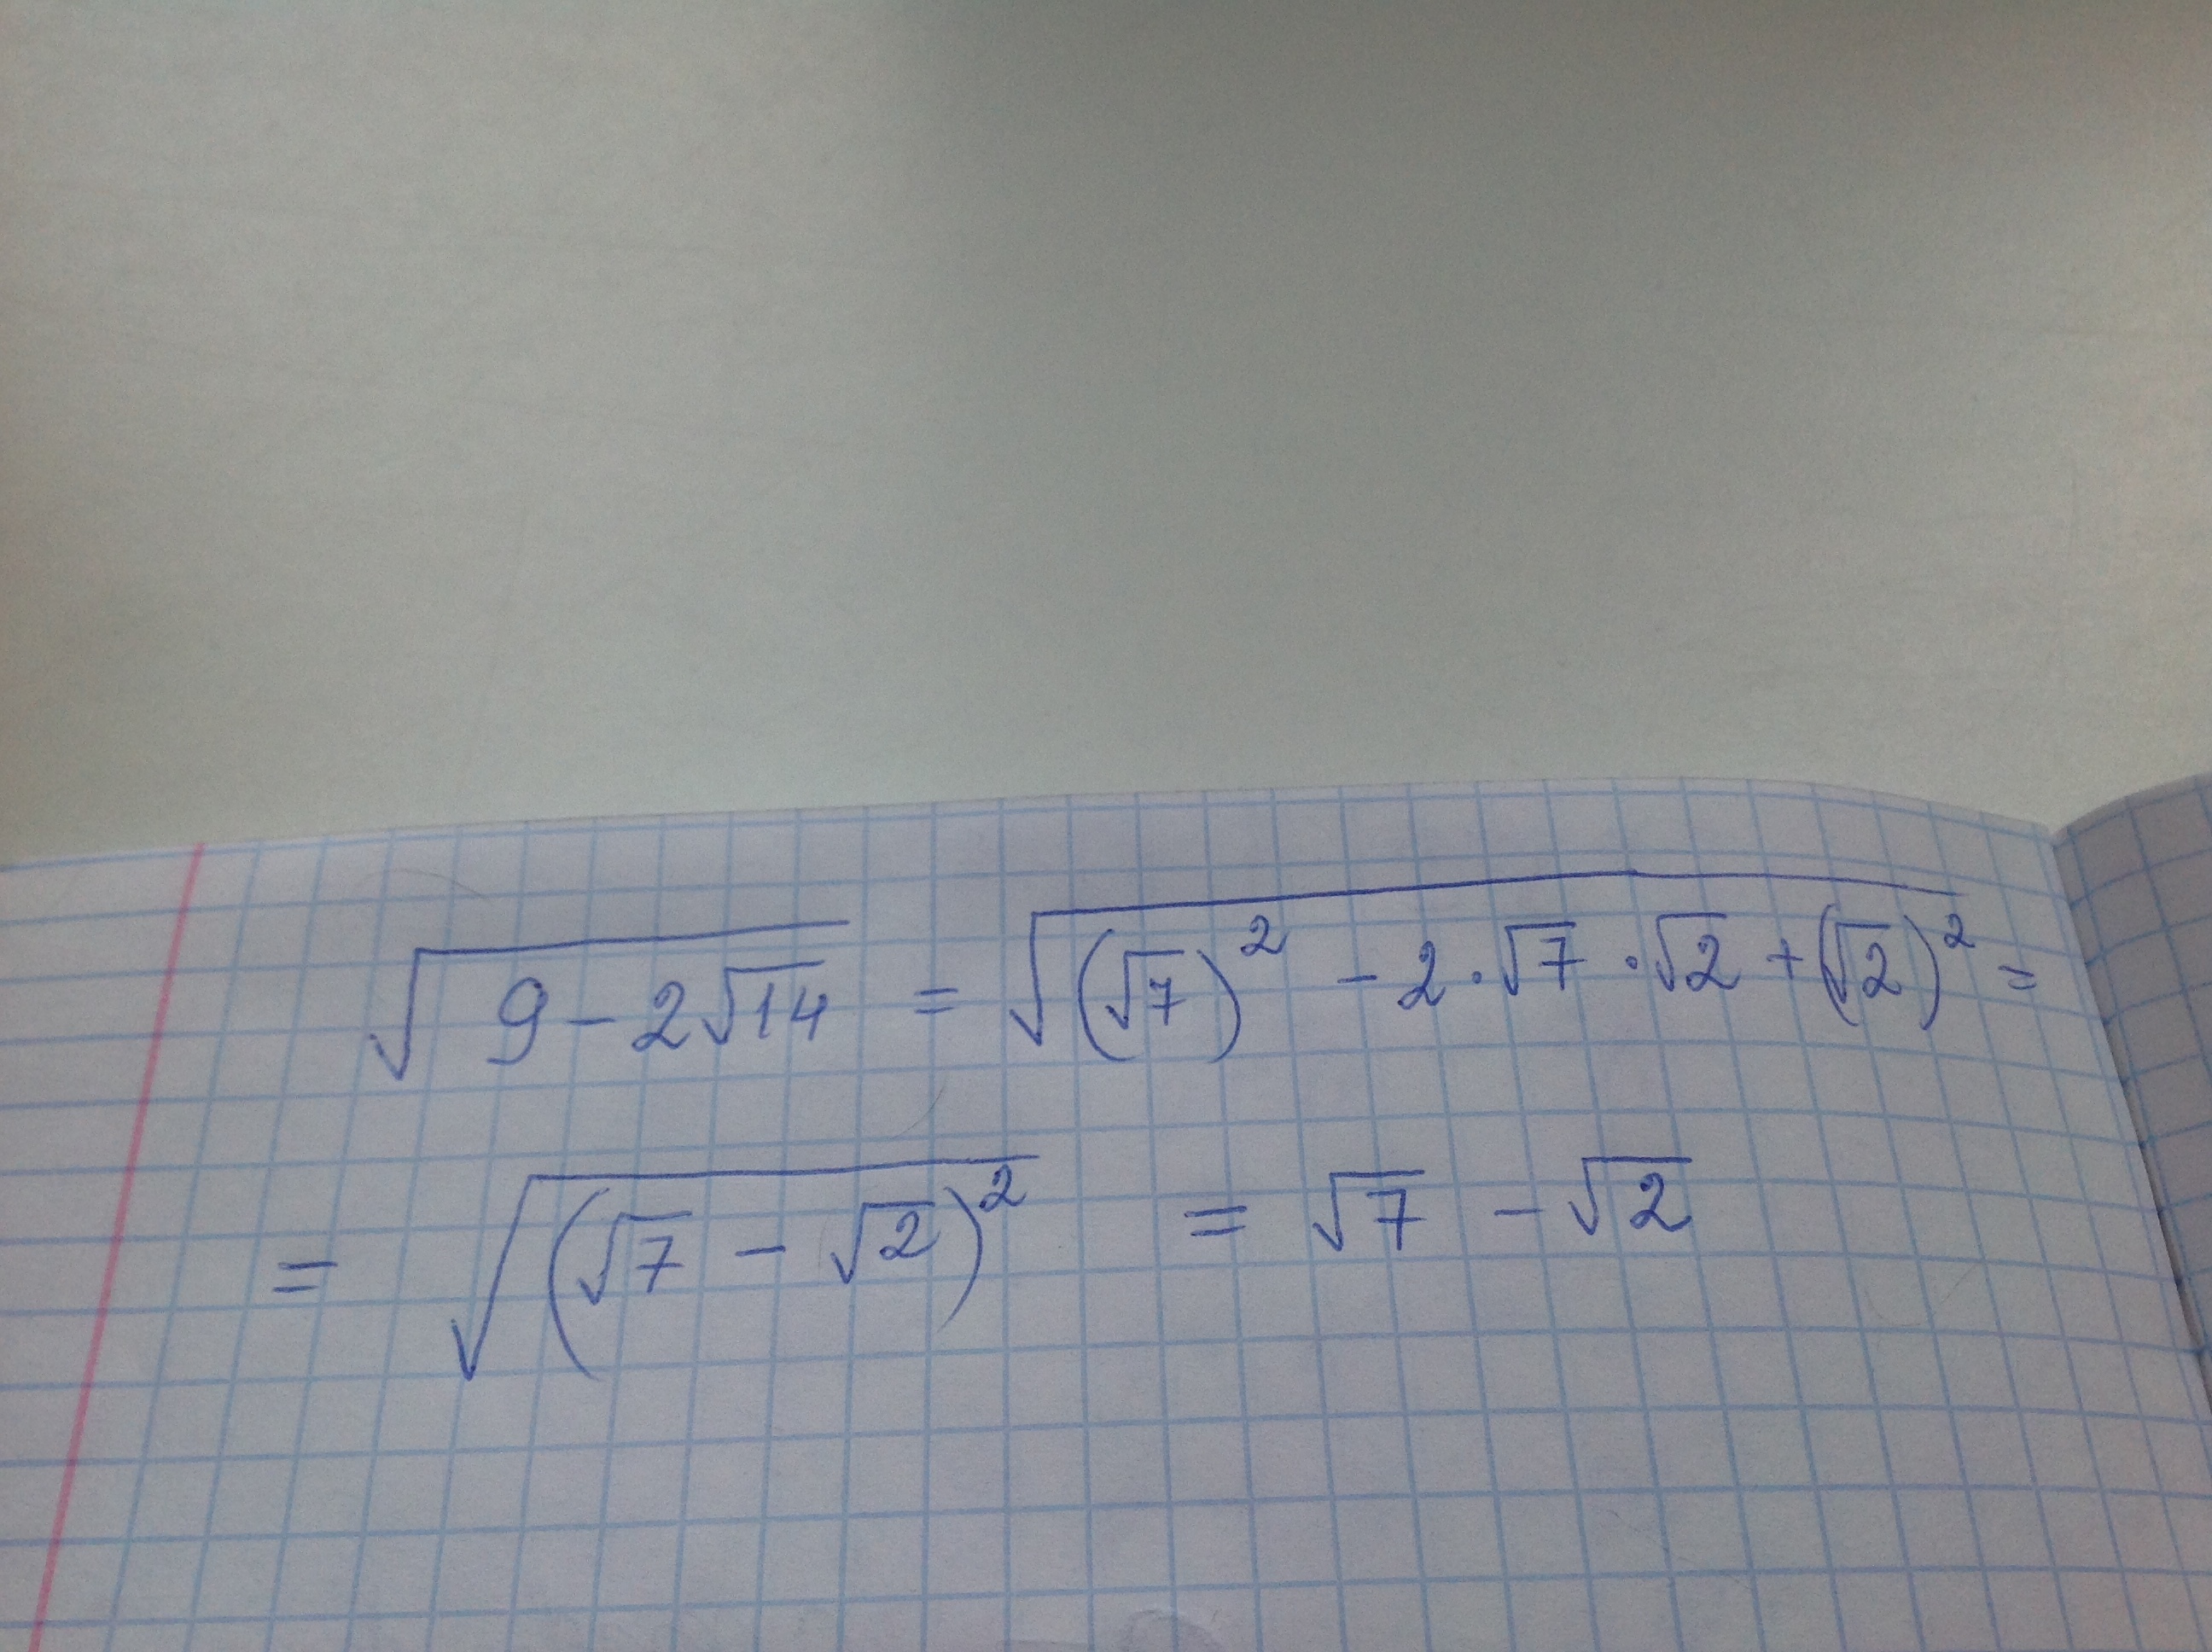 √(9 − 2√14) = √((√7)² − 2·√7·√2 + (√2)²) =
= √((√7 − √2)²) = √7 − √2